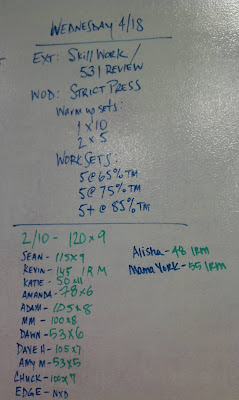 WEDNESDAY 4/18
EXT: SKILL WORK/
531 REVIEW
WOD: STRICT PRESS
Warm up sets:
1 x 10
2 x 5
WORK SETS:
5 @ 65% TM
5 @ 75% TM
5+ @ 85% TM
2/10 - 120 x 9
SEAN - 115x9
KEVIN - 145 1RM
KATIE - 50x11
AMANDA - 78x6
ADAM - 105x8
MM - 100x8
DAWN - 53x6
DAVE H - 105x7
AMY M - 53x5
CHUCK - 100x7
EDGE - NXD
Alisha - 48 1RM
Mama York - 55 1RM